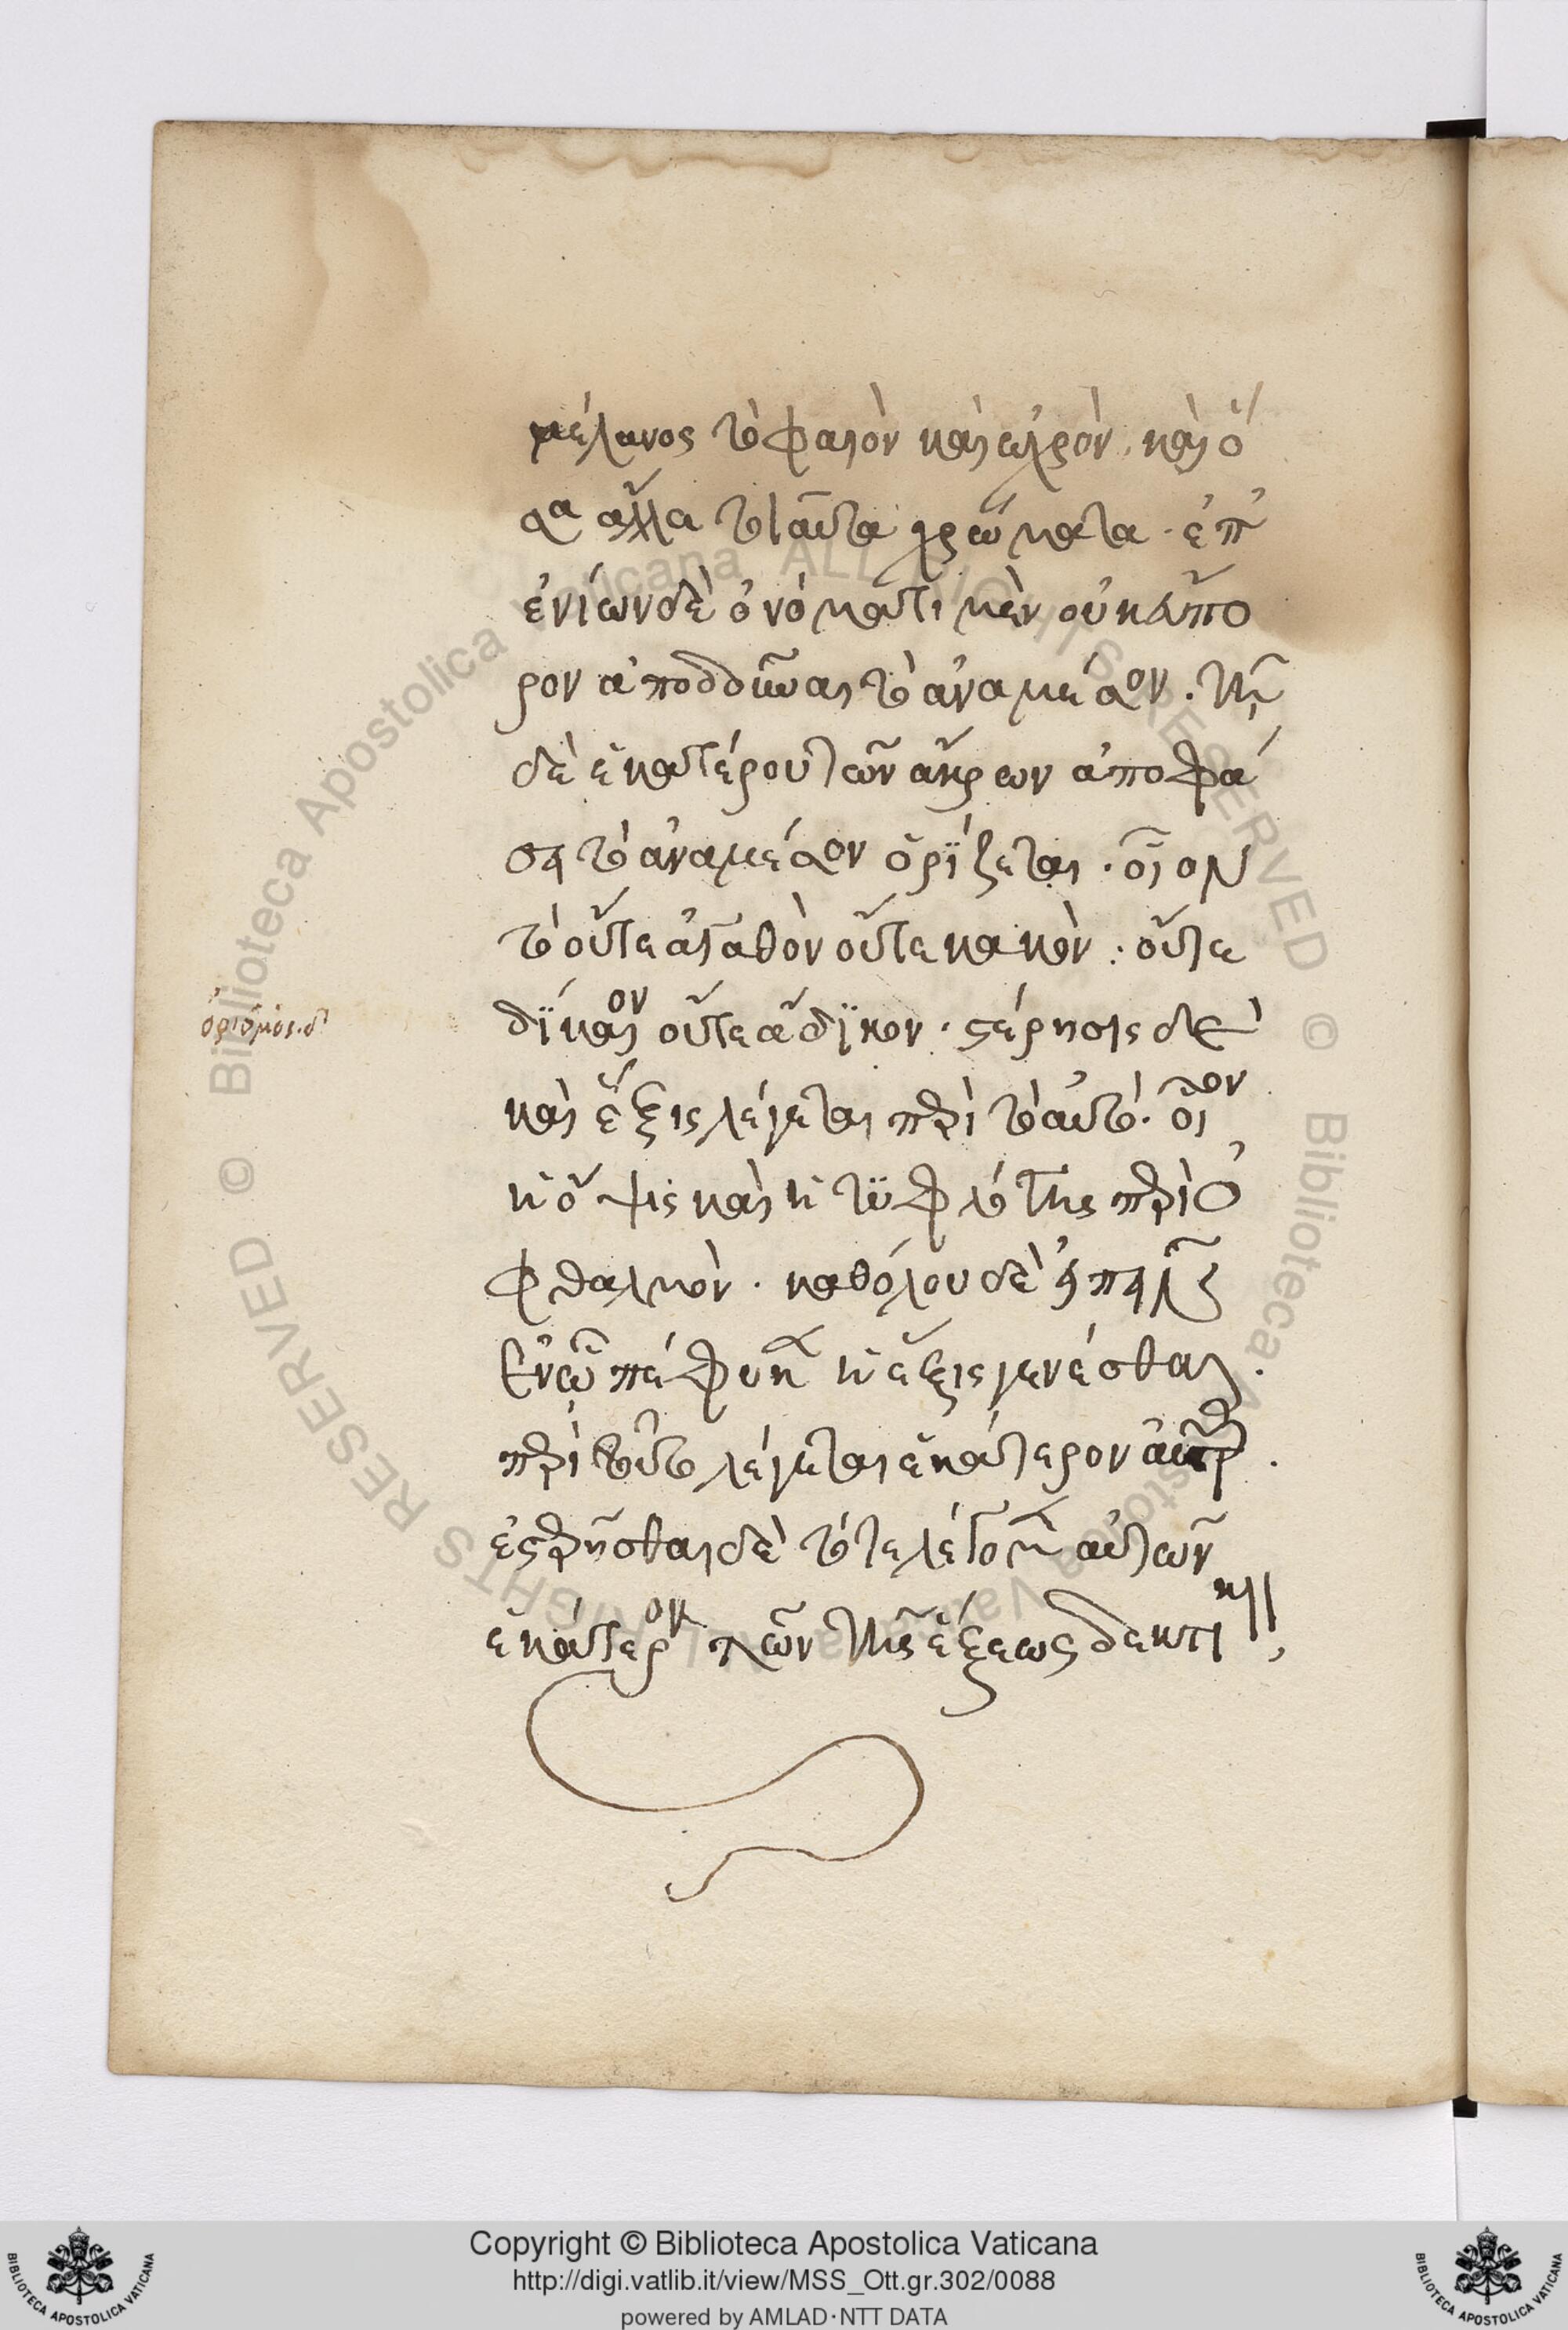 μέλανος τὸ φαιὸν καὶ ὠχρὸν, καὶ ὅ
σα ἄλλα τοιαῦτα χρώματα · ἐπ'
ἐνίων δὲ ὀνόματι μὲν οὐκ εὔπο
ρον ἀποδοῦναι τὸ ἀναμέσον · τῇ
δὲ ἑκατέρου τῶν ἄκρων ἀποφά
σει τὸ ἀναμέσον ὁρΐζεται · οἷον
τὸ οὔτε ἀγαθὸν οὔτε κακὸν : οὔτε
δΐκαιον οὔτε ἄδϊκον · στέρησις δὲ
καὶ ἕξις λέγεται περὶ τὸ αὐτό · οἷον
ἡ ὄψις καὶ ἡ τϋφλότης περὶ ὀ
φθαλμὸν · καθόλου δὲ εἰπεῖν
ἐν ᾧ πέφυκεν ἡ ἕξις γενέσθαι ·
περὶ τοῦτο λέγεται ἑκάτερον αὐτῶν ·
ἐστερῆσθαι δὲ τότε λέγομεν αὐτῶν
ἑκάτερον τῶν τῆς ἕξεως δεκτικῶν
ὁρισμὸς · δ'
Copyright © Biblioteca Apostolica Vaticana
http://digi.vatlib.it/view/MSS_Ott.gr.302/0088
powered by AMLAD·NTT DATA
BIBLIOTECA APOSTOLICA VATICANA
BIBLIOTECA APOSTOLICA VATICANA
© Biblioteca Apostolica Vaticana ALL RIGHTS RESERVED
© Biblioteca Apostolica Vaticana ALL RIGHTS RESERVED